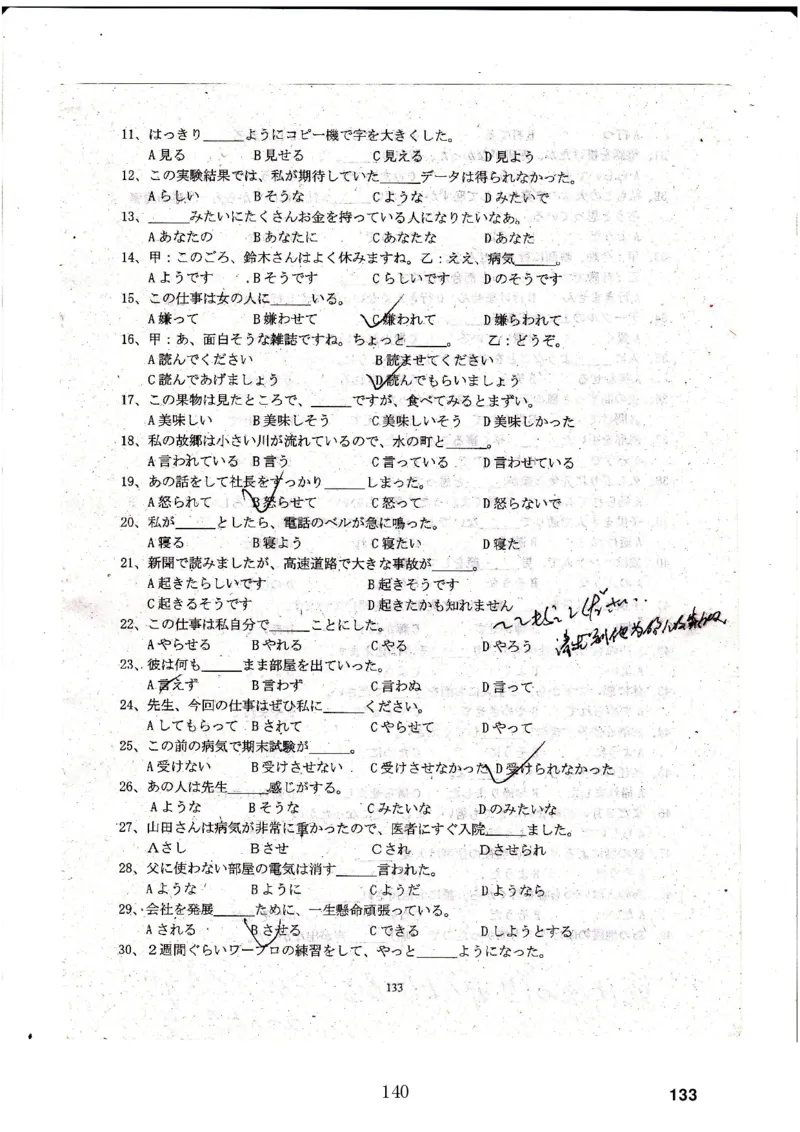 11、はっきり____ようにコピー機で字を大きくした。
A見る B見せる C見える D見よう
12、この実験結果では、私が期待していた____データは得られなかった。
Aらしい Bそうな Cような Dみたいで
13、____みたいにたくさんお金を持っている人になりたいなあ。
Aあなたの Bあなたに Cあなたな Dあなた
14、甲：このごろ、鈴木さんはよく休みますね。乙：ええ、病気____。
Aようです Bそうです Cらしいです Dのそうです
15、この仕事は女の人に____いる。
A嫌って B嫌わせて C嫌われて D嫌らわれて
16、甲：あ、面白そうな雑誌ですね。ちょっと____。 乙：どうぞ。
A読んでください B読ませてください
C読んであげましょう D読んでもらいましょう
17、この果物は見たところで、____ですが、食べてみるとまずい。
A美味しい B美味しそう C美味しいそう D美味しかった
18、私の故郷は小さい川が流れているので、水の町と____。
A言われている B言う C言っている D言わせている
19、あの話をして社長をすっかり____しまった。
A怒られて B怒らせて C怒って D怒らないで
20、私が____としたら、電話のベルが急に鳴った。
A寝る B寝よう C寝たい D寝た
21、新聞で読みましたが、高速道路で大きな事故が____。
A起きたらしいです B起きそうです
C起きるそうです D起きたかも知れません
22、この仕事は私自分で____ことにした。
Aやらせる Bやれる Cやる Dやろう
23、彼は何も____まま部屋を出ていった。
A言えず B言わず C言わぬ D言って
24、先生、今回の仕事はぜひ私に____ください。
Aしてもらって Bされて Cやらせて Dやって
25、この前の病気で期末試験が____。
A受けない B受けさせない C受けさせなかった D受けられなかった
26、あの人は先生____感じがする。
Aような Bそうな Cみたいな Dのみたいな
27、山田さんは病気が非常に重かったので、医者にすぐ入院____ました。
Aさし Bさせ Cされ Dさせられ
28、父に使わない部屋の電気は消す____言われた。
Aような Bように Cようだ Dようなら
29、会社を発展____ために、一生懸命頑張っている。
Aされる Bさせる Cできる Dしようとする
30、２週間ぐらいワープロの練習をして、やっと____ようになった。
133
140
133